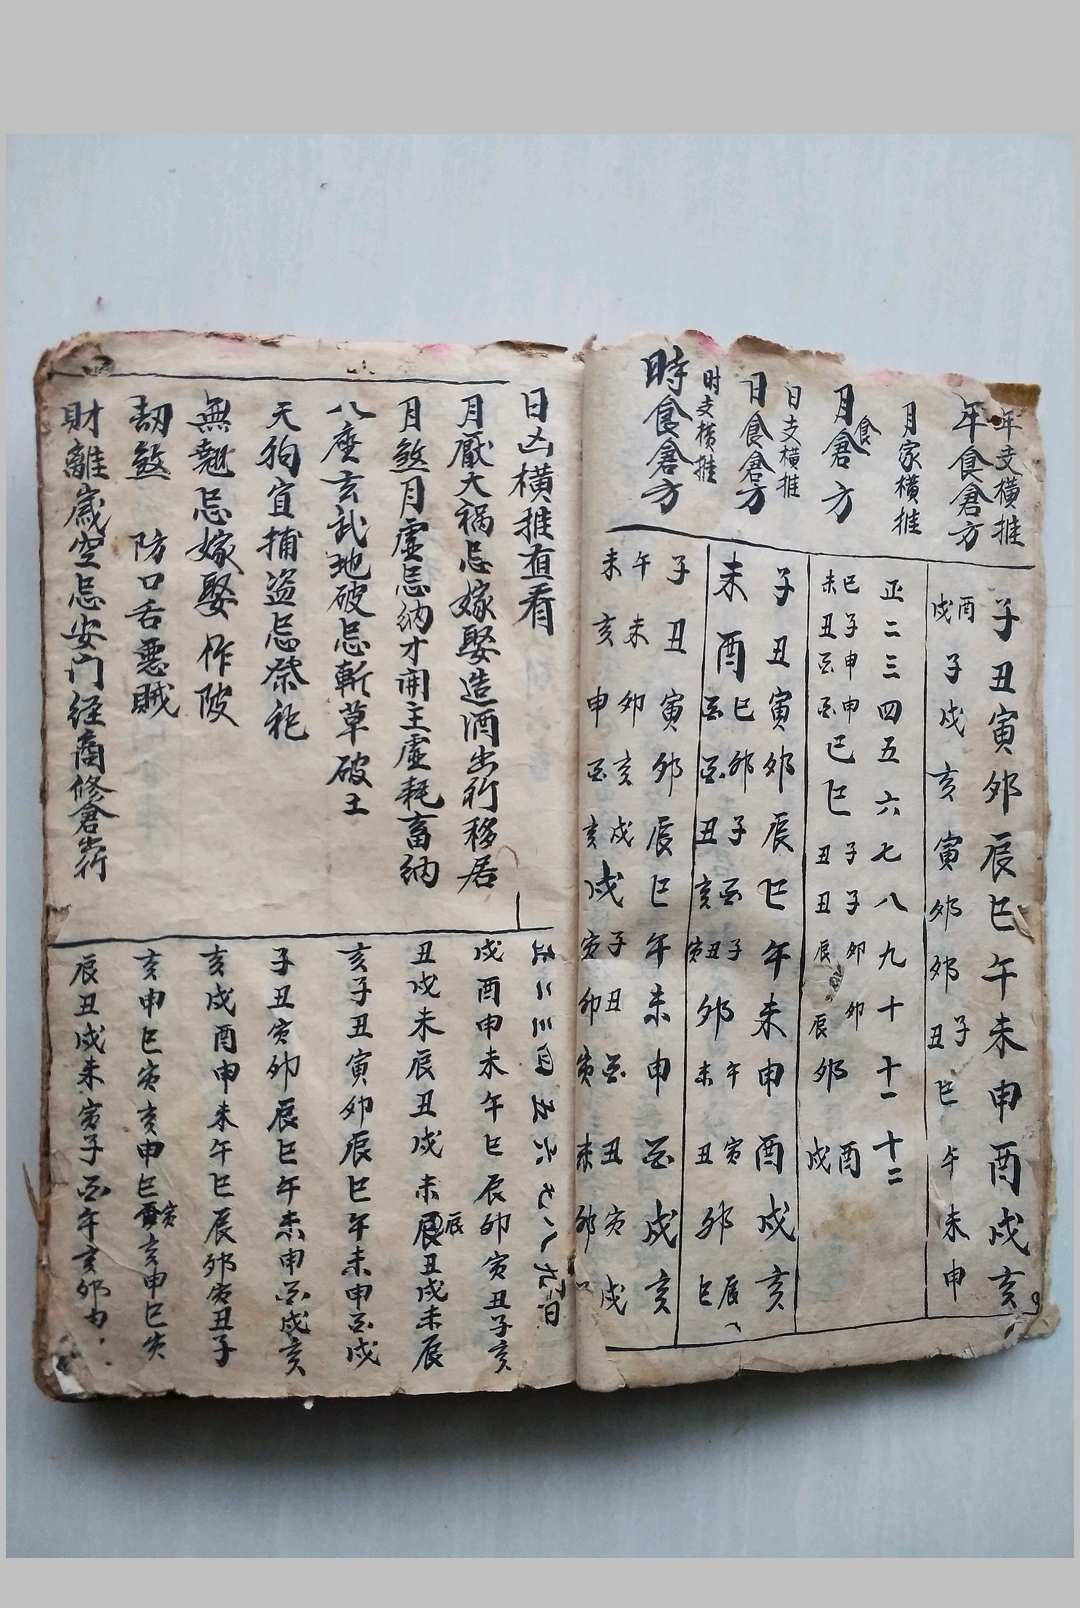 年支橫推
子丑寅卯辰巳午未申酉戌亥
年食倉方
酉戌 子 戌 亥 寅 卯 卯 子丑 巳 午 未 申
月家橫推
正二三四五六七八九十十一十二
月食倉方
巳未 子丑 申酉 申酉 巳 巳 子丑 子丑 卯辰 卯辰 卯 酉戌
日支橫推
子丑寅卯辰巳午未申酉戌亥
日食倉方
未 酉 巳酉 卯酉 子丑 酉亥 子丑寅 卯 午未 寅丑 卯 辰巳
时支橫推
子丑寅卯辰巳午未申酉戌亥
時食倉方
午未 未亥 卯申 亥酉 戌亥 戌 子寅 丑卯 酉寅 丑未 寅卯 戌
日凶橫推直看
正二三四五六七八九十
月厭大禍忌嫁娶造酒出行移居
戌酉申未午巳辰卯寅丑子亥
月煞月虛忌納才開主虛耗畜納
丑戌未辰丑戌未辰丑戌未辰
八座玄武地破忌斬草破土
亥子丑寅卯辰巳午未申酉戌
天狗宜捕盜忌祭祀
子丑寅卯辰巳午未申酉戌亥
無翹忌嫁娶作陂
亥戌酉申未午巳辰卯寅丑子
劫煞 防口舌惡賊
亥申巳寅亥申巳寅亥申巳寅
財離歲空忌安门經商修倉出行
辰丑戌未寅子酉午亥卯